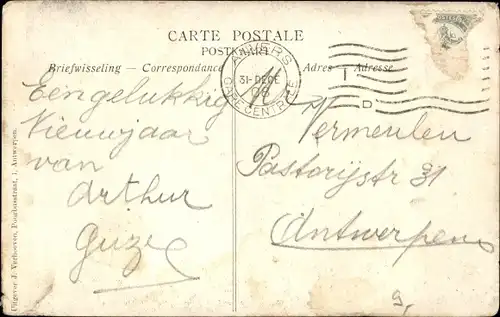 CARTE POSTALE
POSTKAART
Briefwisseling — Correspondance
Adres — Adresse
ANVERS
31-DECE
08
GARE CENTRALE
T
D
Een gelukkig
Nieuwjaar
van
Arthur
Guze
Mr Vermeulen
Pastorijstr 31
Antwerpen
Uitgever J. Verhoeven, Pompbusstraat, 1, Antwerpen.